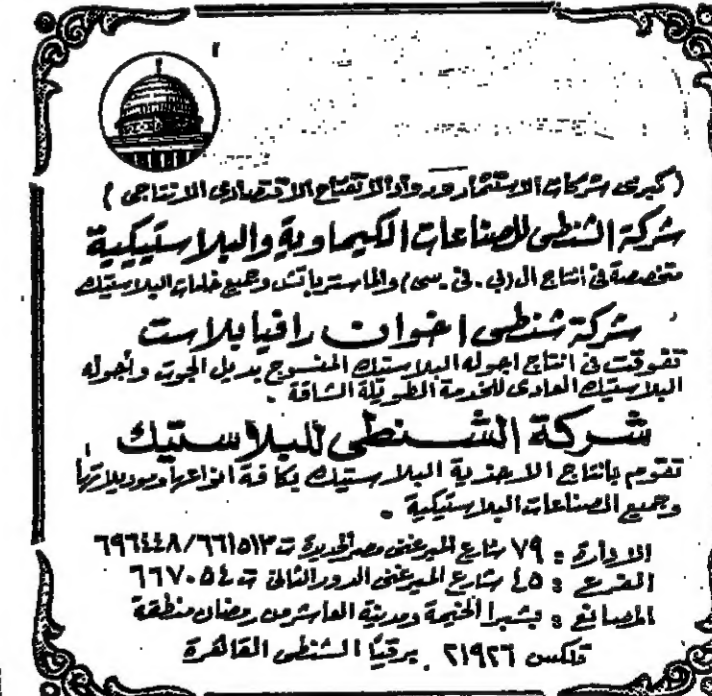 ( كبرى شركات الاستثمار ورواد الانفتاح الاقتصادى الانتاجى )
شركة الشنطى للصناعات الكيماوية والبلاستيكية
متخصصة فى انتاج ال (بى . فى . سى) والماسترباتش وجميع خامات البلاستيك
شركة شنطى اخوان رافيا بلاست
تفوقت فى انتاج اجوله البلاستيك المنسوج بديل الجوت واجوله
البلاستيك العادى للخدمة الطويلة الشاقة .
شركة الشنطى للبلاستيك
تقوم بانتاج الاحذية البلاستيك بكافة انواعها وموديلاتها
وجميع الصناعات البلاستيكية .
الادارة : ٧٩ شارع الميرغنى مصر الجديدة ت ٦٦١٥١٣/٦٩٦٤٤٨
الفرع : ٤٥ شارع الميرغنى الدور الثانى ت ٦٦٧٠٥٤
المصانع : بشبرا الخيمة ومدينة العاشر من رمضان منطقة
تلكس ٢١٩٢٦ . برقيا الشنطى القاهرة